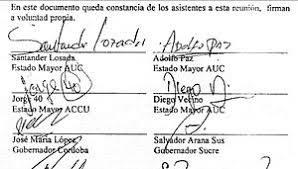 En este documento queda constancia de los asistentes a esta reunión, firman
a voluntad propia.
Santander Losada Adolfo Paz
Santander Losada Adolfo Paz
Estado Mayor AUC Estado Mayor AUC
Jorge 40 Diego V.
Jorge 40 Diego Vecino
Estado Mayor ACCU Estado Mayor AUC
José María López Salvador Arana Sus
Gobernador Cordoba Gobernador Sucre